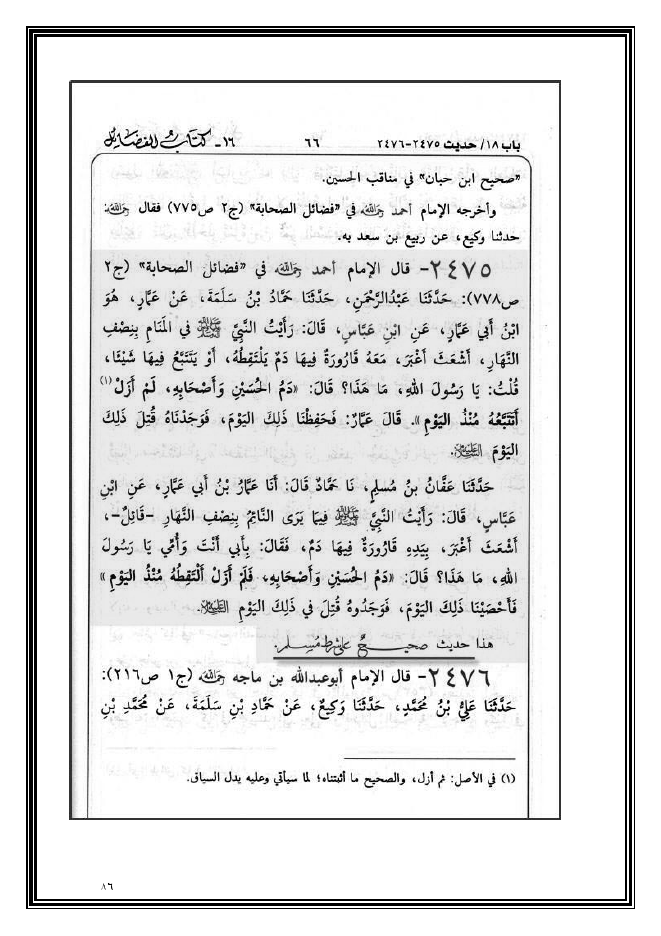 باب ١٨/ حديث ٢٤٧٥-٢٤٧٦ ٦٦ ١٦- كتاب الفضائل
«صحيح ابن حبان» في مناقب الحسين.
وأخرجه الإمام أحمد رحمه الله في «فضائل الصحابة» (ج٢ ص٧٧٥) فقال رحمه الله:
حدثنا وكيع، عن ربيع بن سعد به.
٢٤٧٥- قال الإمام أحمد رحمه الله في «فضائل الصحابة» (ج٢
ص٧٧٨): حَدَّثَنَا عَبْدُالرَّحْمَنِ، حَدَّثَنَا حَمَّادُ بْنُ سَلَمَةَ، عَنْ عَمَّارٍ، هُوَ
ابْنُ أَبِي عَمَّارٍ، عَنِ ابْنِ عَبَّاسٍ، قَالَ: رَأَيْتُ النَّبِيَّ ﷺ فِي المَنَامِ بِنِصْفِ
النَّهَارِ، أَشْعَثَ أَغْبَرَ، مَعَهُ قَارُورَةٌ فِيهَا دَمٌ يَلْتَقِطُهُ، أَوْ يَتَتَبَّعُ فِيهَا شَيْئًا،
قُلْتُ: يَا رَسُولَ اللهِ، مَا هَذَا؟ قَالَ: «دَمُ الحُسَيْنِ وَأَصْحَابِهِ، لَمْ أَزَلْ(١)
أَتَتَبَّعُهُ مُنْذُ اليَوْمِ». قَالَ عَمَّارٌ: فَحَفِظْنَا ذَلِكَ اليَوْمَ، فَوَجَدْنَاهُ قُتِلَ ذَلِكَ
اليَوْمَ عليه السلام.
حَدَّثَنَا عَفَّانُ بْنُ مُسْلِمٍ، نَا حَمَّادٌ قَالَ: أَنَا عَمَّارُ بْنُ أَبِي عَمَّارٍ، عَنِ ابْنِ
عَبَّاسٍ، قَالَ: رَأَيْتُ النَّبِيَّ ﷺ فِيمَا يَرَى النَّائِمُ بِنِصْفِ النَّهَارِ -قَائِلٌ-،
أَشْعَثَ أَغْبَرَ، بِيَدِهِ قَارُورَةٌ فِيهَا دَمٌ، فَقَالَ: بِأَبِي أَنْتَ وَأُمِّي يَا رَسُولَ
اللهِ، مَا هَذَا؟ قَالَ: «دَمُ الحُسَيْنِ وَأَصْحَابِهِ، فَلَمْ أَزَلْ أَلْتَقِطُهُ مُنْذُ اليَوْمِ»
فَأَحْصَيْنَا ذَلِكَ اليَوْمَ، فَوَجَدُوهُ قُتِلَ فِي ذَلِكَ اليَوْمِ عليه السلام.
هذا حديث صحيحٌ على شرط مُسلم.
٢٤٧٦- قال الإمام أبوعبدالله بن ماجه رحمه الله (ج١ ص٢١٦):
حَدَّثَنَا عَلِيُّ بْنُ مُحَمَّدٍ، حَدَّثَنَا وَكِيعٌ، عَنْ حَمَّادِ بْنِ سَلَمَةَ، عَنْ مُحَمَّدِ بْنِ
(١) في الأصل: ثم أزل، والصحيح ما أثبتناه؛ لما سيأتي وعليه يدل السياق.
٨٦